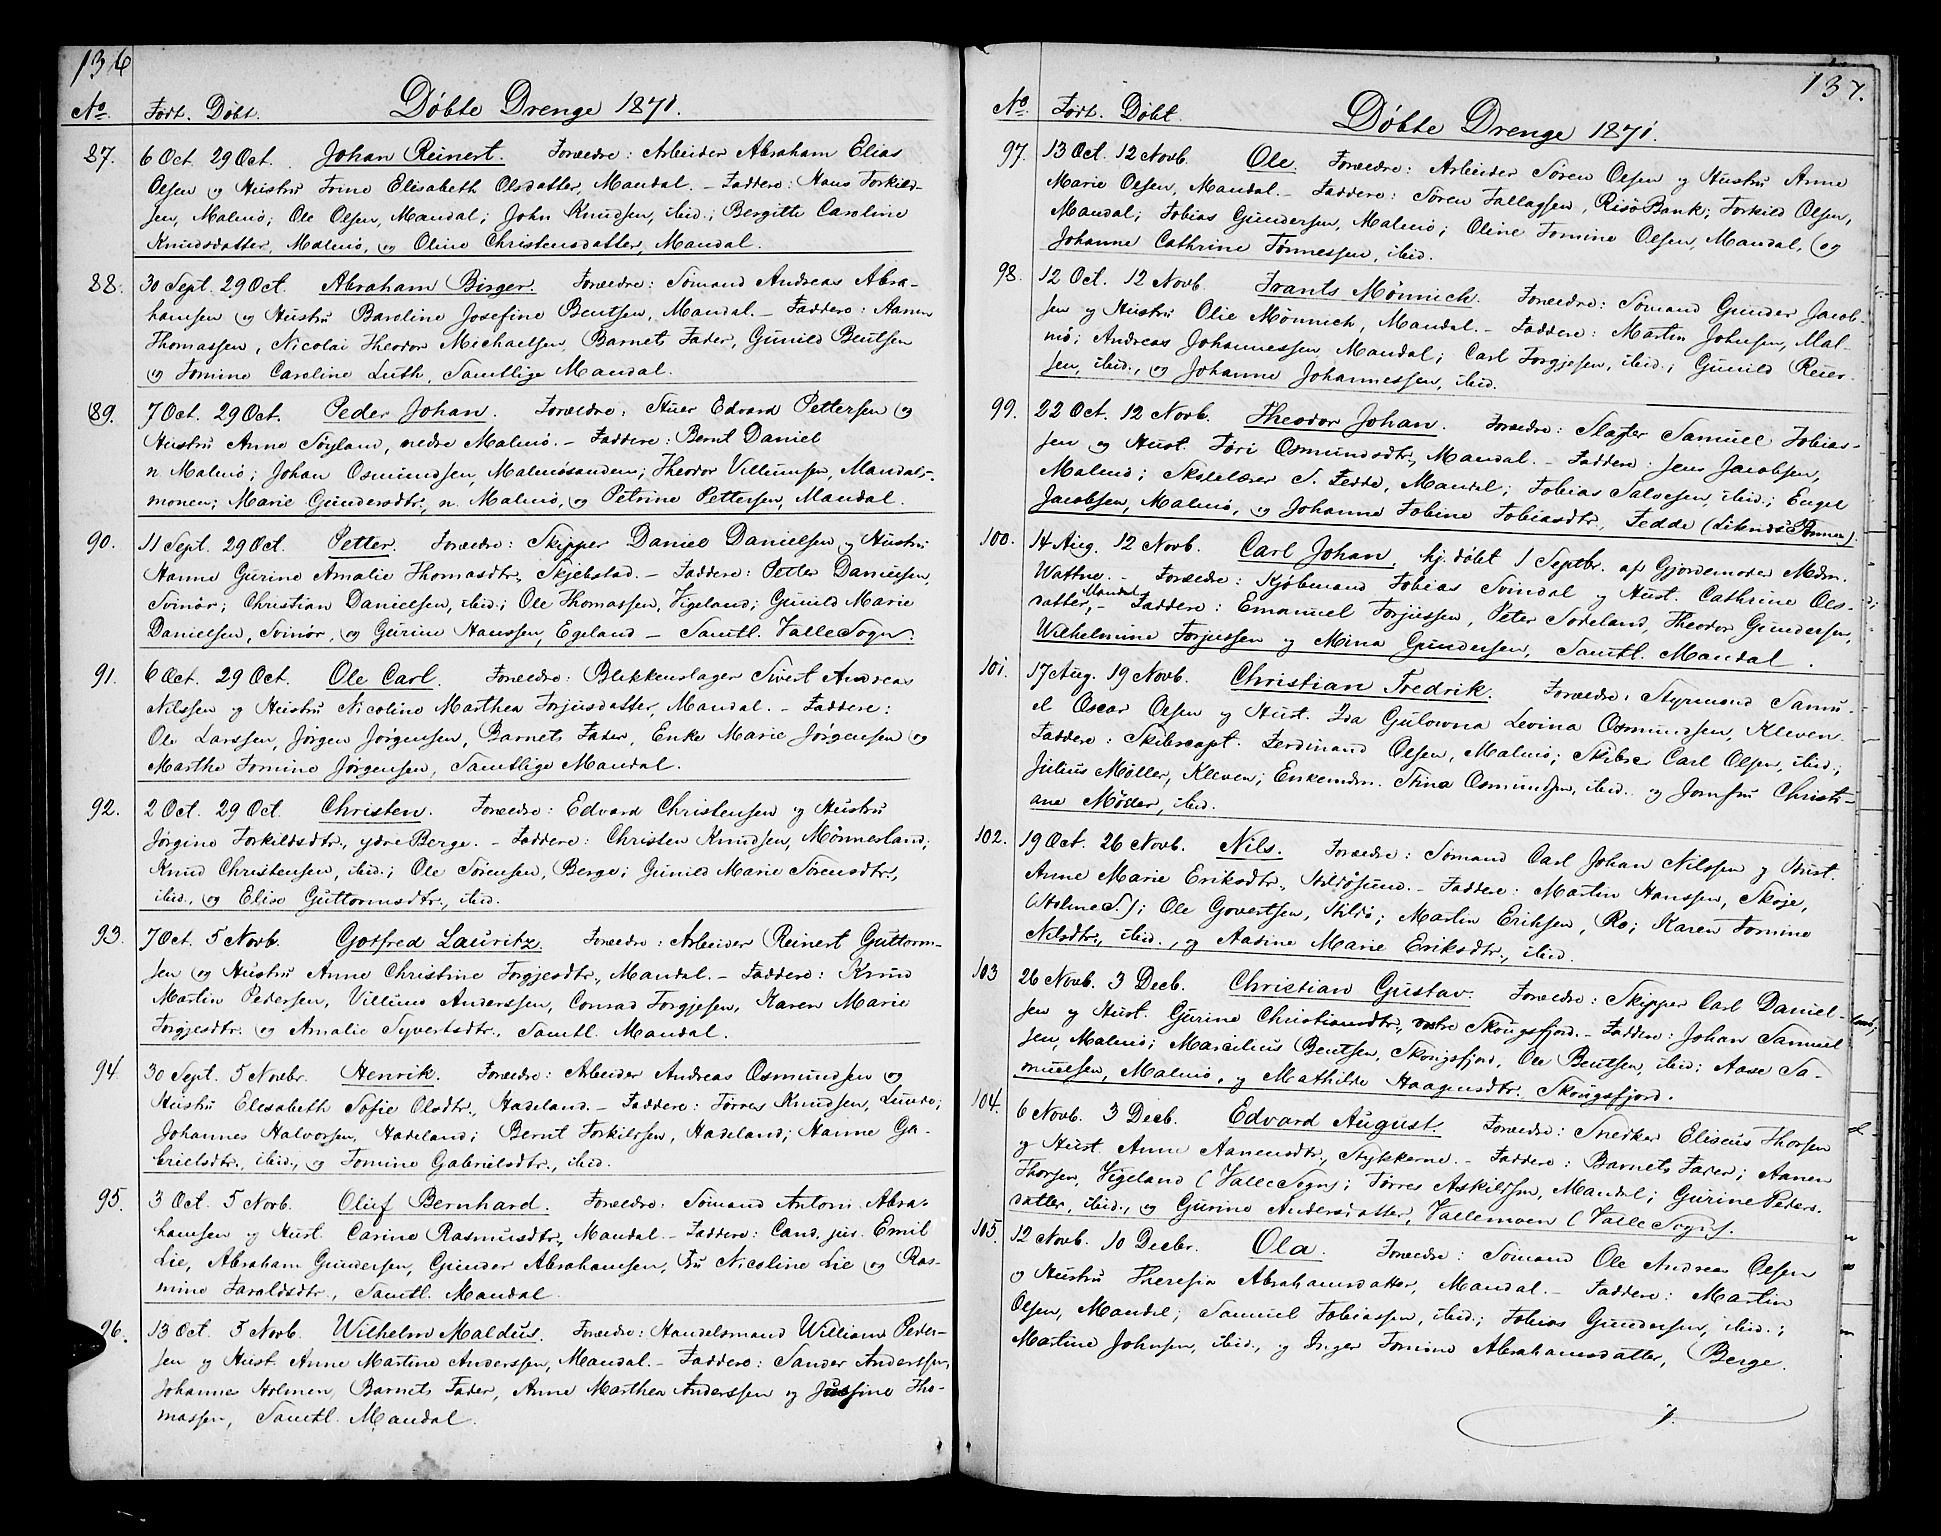 136
No. Født. Døbt. Døbte Drenge 1871.
87. 6 Oct. 29 Oct. Johan Reinert. Forældre: Arbeider Abraham Elias
Olsen og Hustru Tomine Elisabeth Olsdatter, Mandal. – Faddere: Hans Torkild-
sen, Malmø; Ole Olsen, Mandal; John Knudsen, ibid.; Bergitte Caroline
Knudsdatter, Malmø, og Oline Christensdatter, Mandal.
88. 30 Sept. 29 Oct. Abraham Birger. Forældre: Sømand Andreas Abra-
hamsen og Hustru Baroline Josefine Bentsen, Mandal. – Faddere: Aanen
Thomassen, Nicolai Theodor Michaelsen, Barnets Fader, Gunild Bentsen
og Tomine Caroline Luth, Samtlige Mandal.
89. 7 Oct. 29 Oct. Peder Johan. Forældre: Stuer Edvard Pettersen og
Hustru Anne Søyland, nedre Malmø. – Faddere: Bernt Daniel
n. Malmø; Johan Osmundsen, Malmøsanden; Theodor Villumsen, Mandals-
monen; Marie Gundersdtr., n. Malmø, og Petrine Pettersen, Mandal.
90. 11 Sept. 29 Oct. Petter. Forældre: Skipper Daniel Danielsen og Hustru
Hanne Gurine Amalie Thomasdtr., Skjebstad. – Faddere: Petter Danielsen,
Svinør; Christian Danielsen, ibid.; Ole Thomassen, Vigeland; Gunild Marie
Danielsen, Svinør, og Gurine Hanssen, Egeland – Samtl. Valle Sogn.
91. 6 Oct. 29 Oct. Ole Carl. Forældre: Blikkenslager Sivert Andreas
Nilssen og Hustru Nicoline Marthea Torjusdatter, Mandal. – Faddere:
Ole Larssen, Jørgen Jørgensen, Barnets Fader, Enke Marie Jørgensen og
Marthe Tomine Jørgensen, Samtlige Mandal.
92. 2 Oct. 29 Oct. Christen. Forældre: Edvard Christensen og Hustru
Jørgine Torkildsdtr., ydre Berge. – Faddere: Christen Knudsen, Mønnesland;
Knud Christensen, ibid.; Ole Sørensen, Berge; Gunild Marie Sørensdtr.,
ibid., og Elise Guttormsdtr., ibid.
93. 7 Oct. 5 Novb. Gotfred Lauritz. Forældre: Arbeider Reinert Guttorm-
sen og Hustru Anne Christine Torgjesdtr., Mandal. – Faddere: Knud
Martin Pedersen, Villum Anderssen, Conrad Torgjesen, Karen Marie
Torgjesdtr. og Amalie Syvertsdtr., Samtl. Mandal.
94. 30 Sept. 5 Novbr. Henrik. Forældre: Arbeider Andreas Osmundsen og
Hustru Elesabeth Sofie Olsdtr., Hadeland. – Faddere: Tørres Knudsen, Lunde;
Johannes Halvorsen, Hadeland; Bernt Torkildsen, Hadeland; Hanne Ga-
brielsdtr., ibid., og Tomine Gabrielsdtr., ibid.
95. 3 Oct. 5 Novb. Oluf Bernhard. Forældre: Sømand Antoni Abra-
hamsen og Hust. Carine Rasmusdtr., Mandal. – Faddere: Cand. jur. Emil
Lie, Abraham Gundersen, Gunder Abrahamsen, Fru Nicoline Lie og Ras-
mine Taraldsdtr., Samtl. Mandal.
96. 13 Oct. 5 Novb. Wilhelm Maldus. Forældre: Handelsmand William Peder-
sen og Hust. Anne Martine Anderssen, Mandal. – Faddere: Sander Anderssen,
Johannes Holmen, Barnets Fader, Anne Marthea Anderssen og Jusfine Tho-
massen, Samtl. Mandal.
137.
No. Født. Døbt. Døbte Drenge 1871.
97. 13 Oct. 12 Novb. Ole. Forældre: Arbeider Søren Olsen og Hustru Anne
Marie Olsen, Mandal. – Faddere: Søren Fallagsen, RisøBank; Torkild Olsen,
Mandal; Tobias Gundersen, Malmø; Oline Tomine Olsen, Mandal, og
Johanne Cathrine Tønnessen, ibid.
98. 12 Oct. 12 Novb. Frants Mønnich. Forældre: Sømand Gunder Jacob-
sen og Hustru Olie Mønnich, Mandal. – Faddere: Martin Johnsen, Mal-
mø; Andreas Johannessen, Mandal; Carl Torgjesen, ibid.; Gunild Reier-
sen, ibid., og Johanne Johannessen, ibid.
99. 22 Oct. 12 Novb. Theodor Johan. Forældre: Slagter Samuel Tobias-
sen og Hust. Tøri Osmundsdtr., Mandal. – Faddere: Jens Jacobsen,
Malmø; Skolelærer S. Fedde, Mandal; Tobias Salvesen, ibid.; Engel
Jacobsen, Malmø, og Johanne Tobine Tobiasdtr., Fedde
100. 14 Aug. 12 Novb. Carl Johan, hj. døbt 1 Septbr. af Gjordemoder Mdm.
Wattne. – Forældre: Kjøbmand Tobias Svindal og Hust. Cathrine Ols-
datter, Mandal – Faddere: Emanuel Torjussen, Peter Sodeland, Theodor Gundersen,
Wilhelmine Torjussen og Mina Gundersen, Samtl. Mandal.
101. 17 Aug. 19 Novb. Christian Fredrik. Forældre: Styrmand Samu-
el Oscar Olsen og Hust. Ida Gulowna Levina Osmundsen, Kleven.
Faddere: Skibscapt. Ferdinand Olsen, Malmø; Skibsc. Carl Olsen, ibid.;
Julius Møller, Kleven; Enkemdm. Stina Osmundsen, ibid. og Jomfru Christi-
ane Møller, ibid.
102. 19 Oct. 26 Novb. Nils. Forældre: Sømand Carl Johan Nilssen og Hust.
Anne Marie Eriksdtr., Hildøsund. – Faddere: Martin Hanssen, Skoje,
(Holme S.); Ole Govertsen, Hildø; Martin Eriksen, Ro; Karen Tomine
Nilsdtr., ibid., og Aasine Marie Eriksdtr., ibid.
103 26 Novb. 3 Decb. Christian Gustav. Forældre: Skipper Carl Daniel-
sen og Hust. Gurine Christiansdtr., vestre Skougsfjord. – Faddere: Johan Samuel
sen, Malmø; Marcelius Bentsen, Skougsfjord, Ole Bentsen, ibid.; Aase Sa-
muelsen, Malmø, og Mathilde Haagensdtr. Skougsfjord.
104. 6 Novb. 3 Decb. Edvard August. Forældre: Snedker Eliseus Thorsen
og Hust. Anne Aanensdtr., Stykkerne. – Faddere: Barnets Fader; Aanen
Thorsen, Vigeland (Valle Sogn); Tørres Askildsen, Mandal; Gurine Peders-
datter, ibid., og Gurine Andersdatter, Vallemoen (Valle Sogn).
105. 12 Novb. 10 Decbr. Ola. Forældre: Sømand Ole Andreas Olsen
og Hustru Theresia Abrahamsdatter, Mandal. – Faddere: Martin
Olsen, Mandal; Samuel Tobiassen, ibid.; Tobias Gundersen, ibid.;
Martine Johnsen, ibid., og Inger Tomine Abrahamsdatter, Berge.